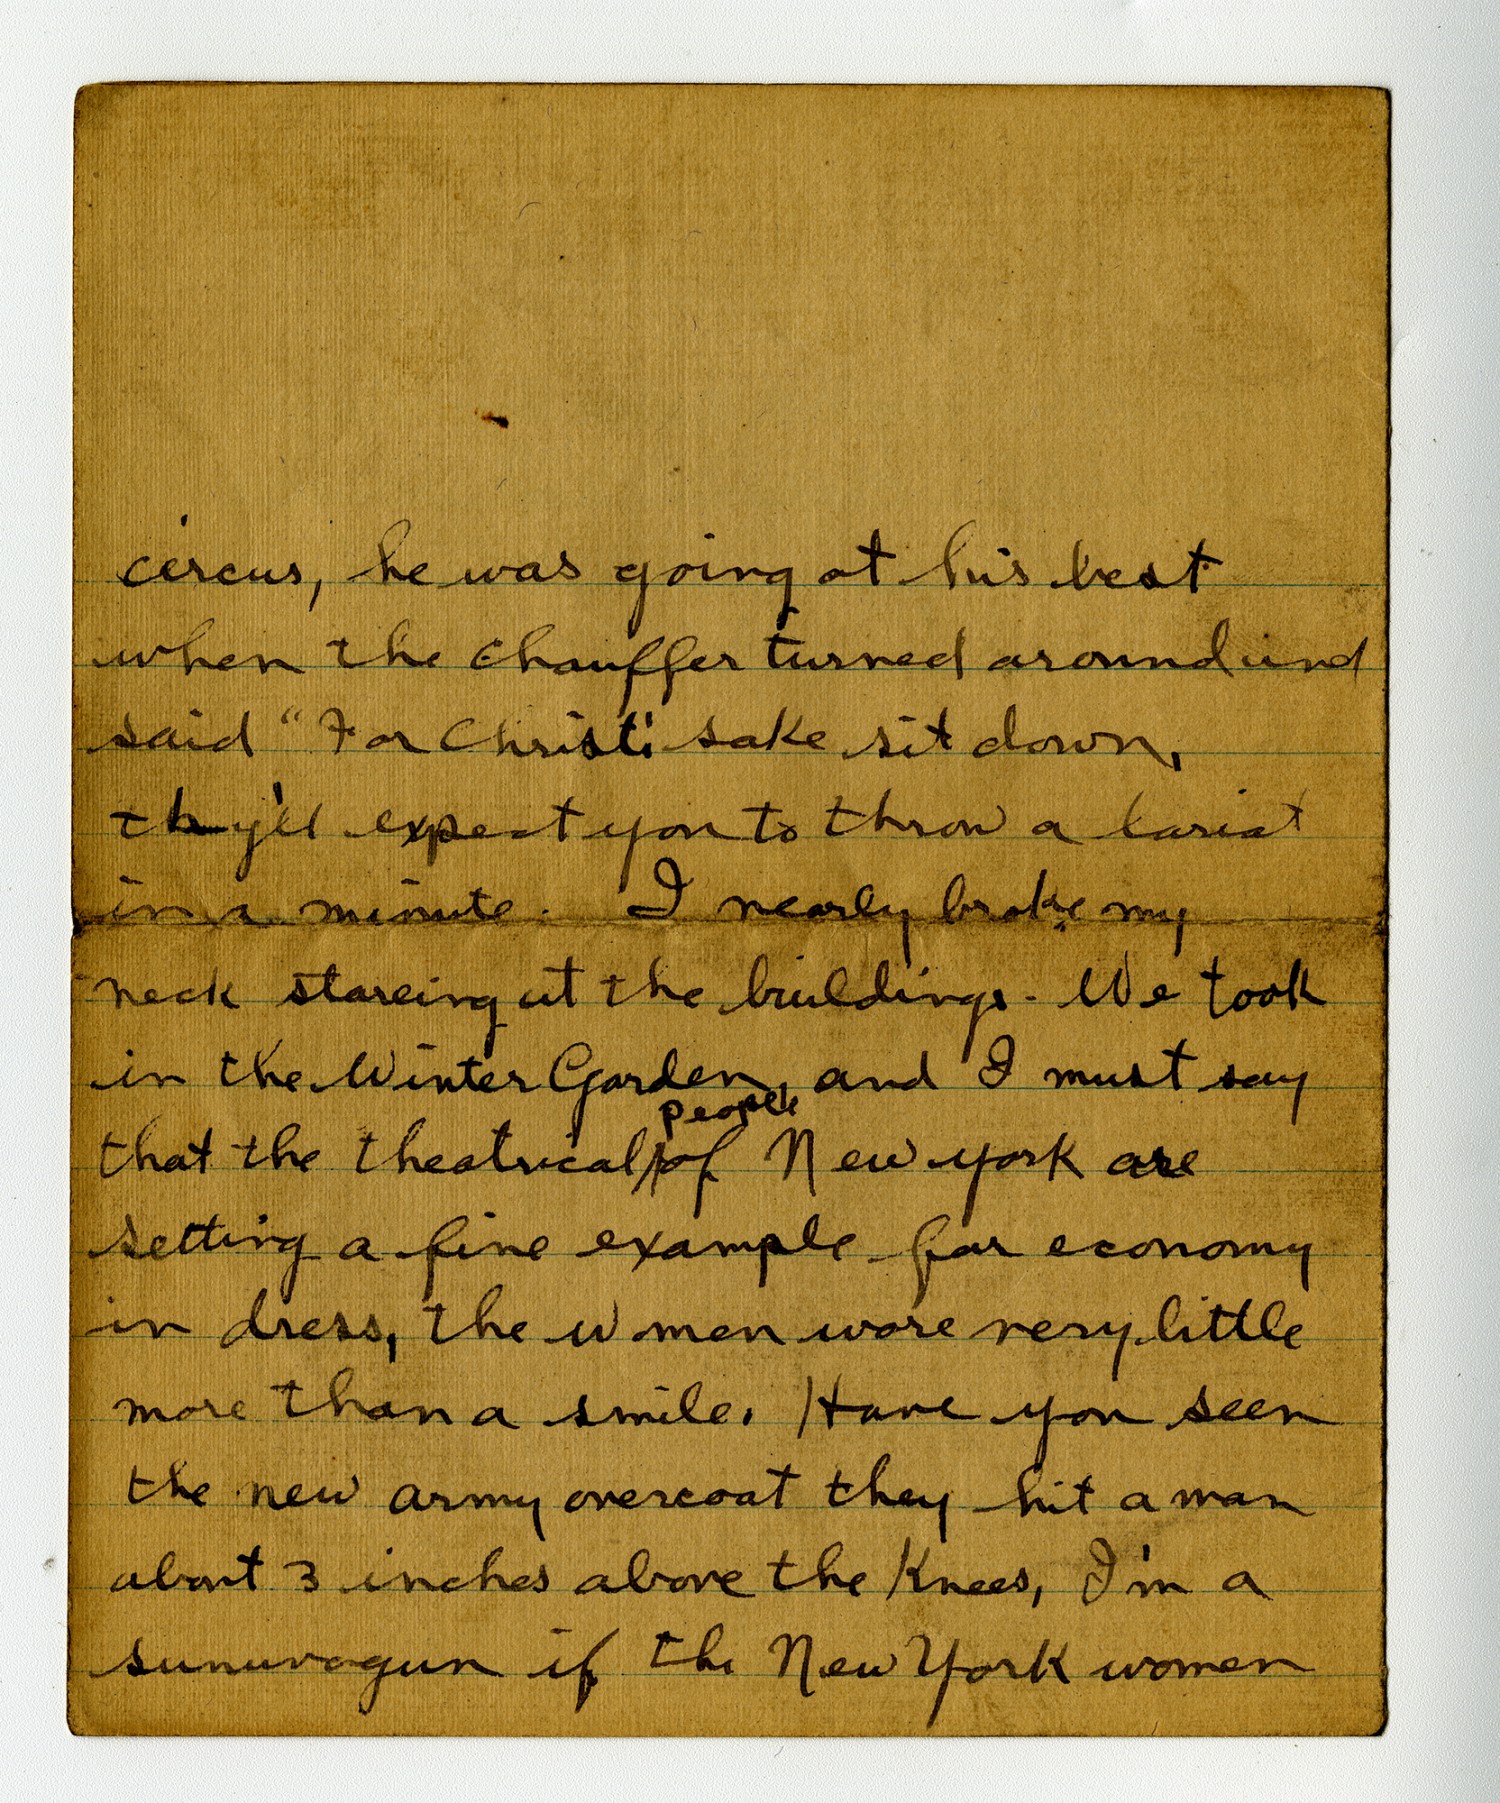 circus, he was going at his best
when the chauffer turned around and
said "For Christ's sake sit down,
they'll expect you to throw a lariat
in a minute. I nearly broke my
neck stareing at the buildings. We took
in the Winter Garden, and I must say
that the theatrical people of New york are
setting a fine example for economy
in dress, the women wore very little
more than a smile. Have you seen
the new army overcoat they hit a man
about 3 inches above the Knees, I'm a
sunuvagun if the New York women